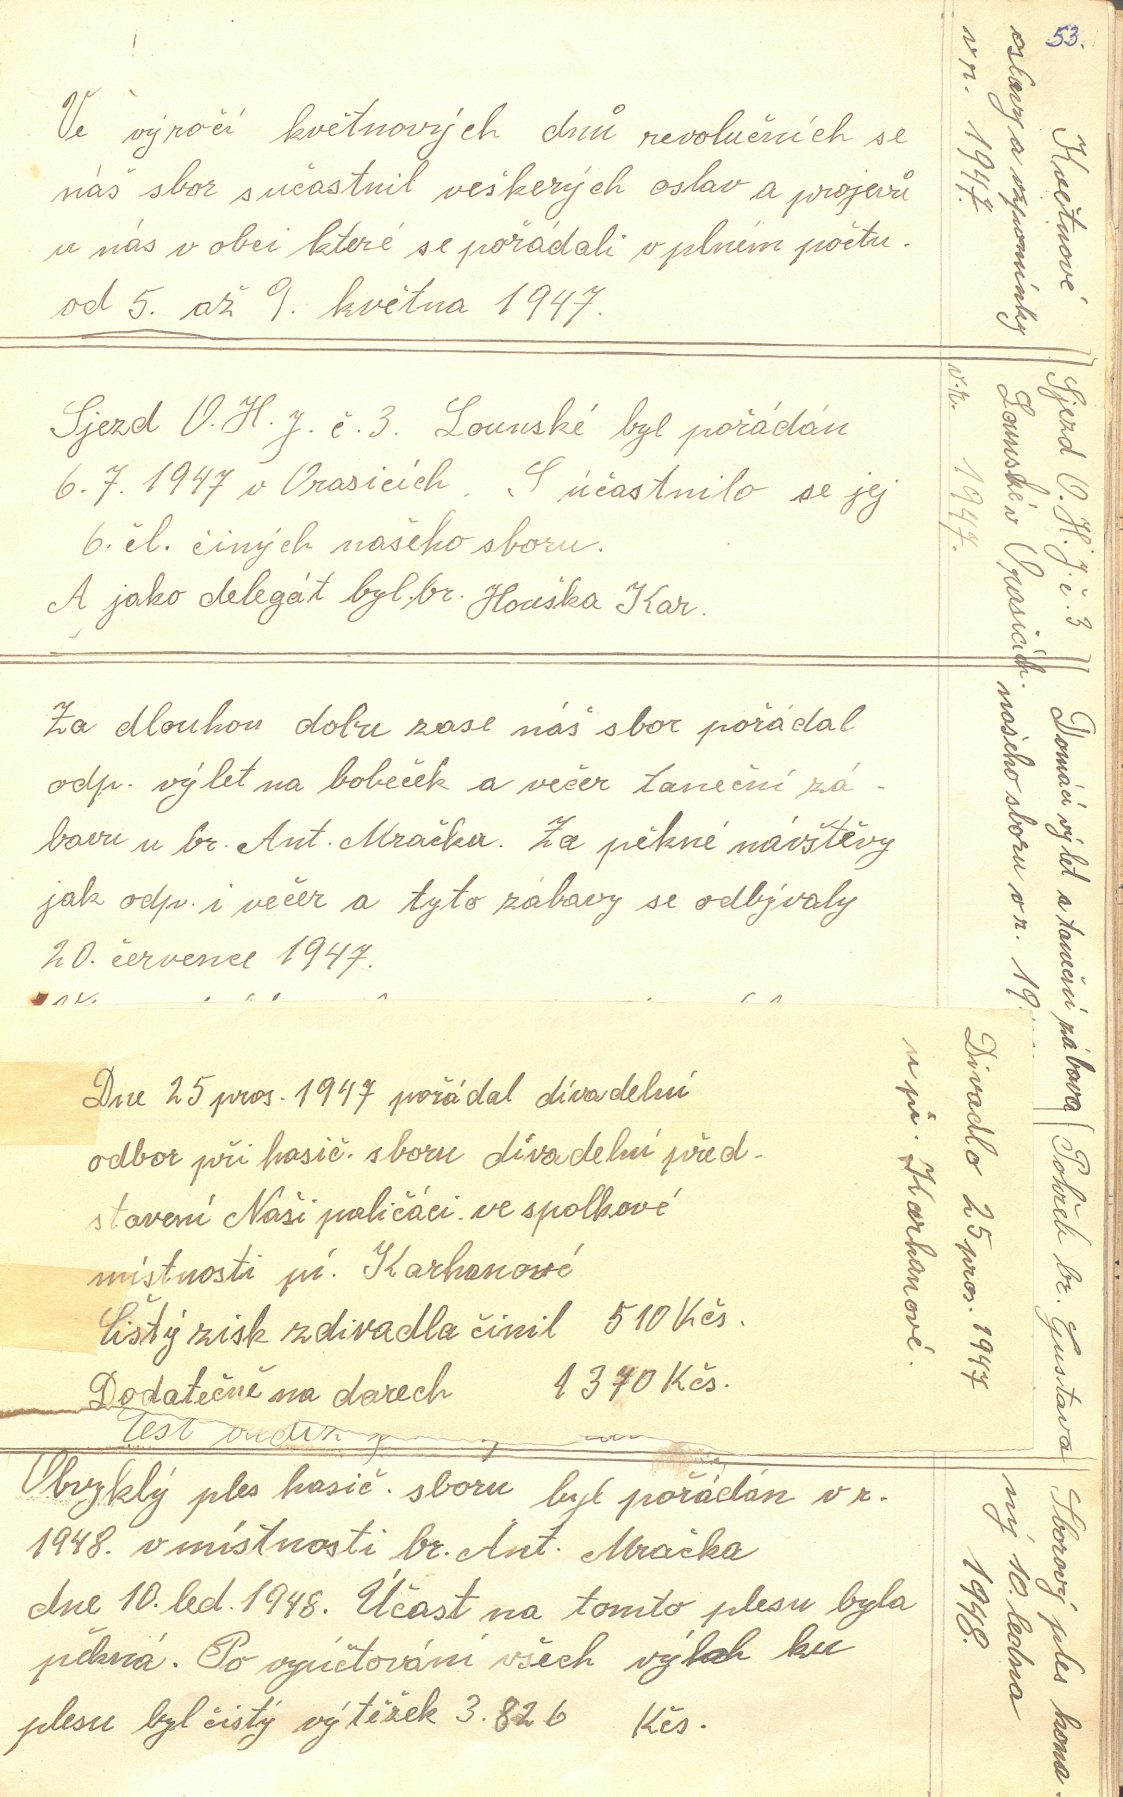 53.
Ve výročí květnových dnů revolučních se
náš sbor sučastnil veškerých oslav a projevů
u nás v obci které se pořádali v plném počtu.
od 5. až 9. května 1947.
Květnové
oslavy a vzpomínky
v r. 1947.
Sjezd O.H.J. č. 3. Lounské byl pořádán
6. 7. 1947 v Orasicích. S účastnilo se jej
6. čl. činých našeho sboru.
A jako delegát byl br. Houška Kar.
Sjezd O.H.J. č. 3
Lounské v Orasicích.
v.r. 1947.
Za dlouhou dobu zase náš sbor pořádal
odp. výlet na bobeček a večer taneční zá-
bavu u br. Ant. Mračka. Za pěkné návštěvy
jak odp. i večer a tyto zábavy se odbývaly
20. července 1947.
Domácí výlet a taneční zábava
našeho sboru v r. 19
Dne 25 pros. 1947 pořádal divadelní
odbor při hasič. sboru divadelní před-
stavení Naši paličáci. ve spolkové
místnosti pí. Karhanové
Čistý zisk z divadla činil 510 Kčs.
Dodatečně na darech 1370 Kčs.
Divadlo 25 pros. 1947
u pí. Karhanové.
Pohřeb br. Gustava
čest
Obvyklý ples hasič. sboru byl pořádán v r.
1948. v místnosti br. Ant. Mračka
dne 10. led. 1948. Účast na tomto plesu byla
pěkná. Po vyúčtování všech výloh ku
plesu byl čistý výtěžek 3.826 Kčs.
Sborový ples koná-
ný 10. ledna
1948.